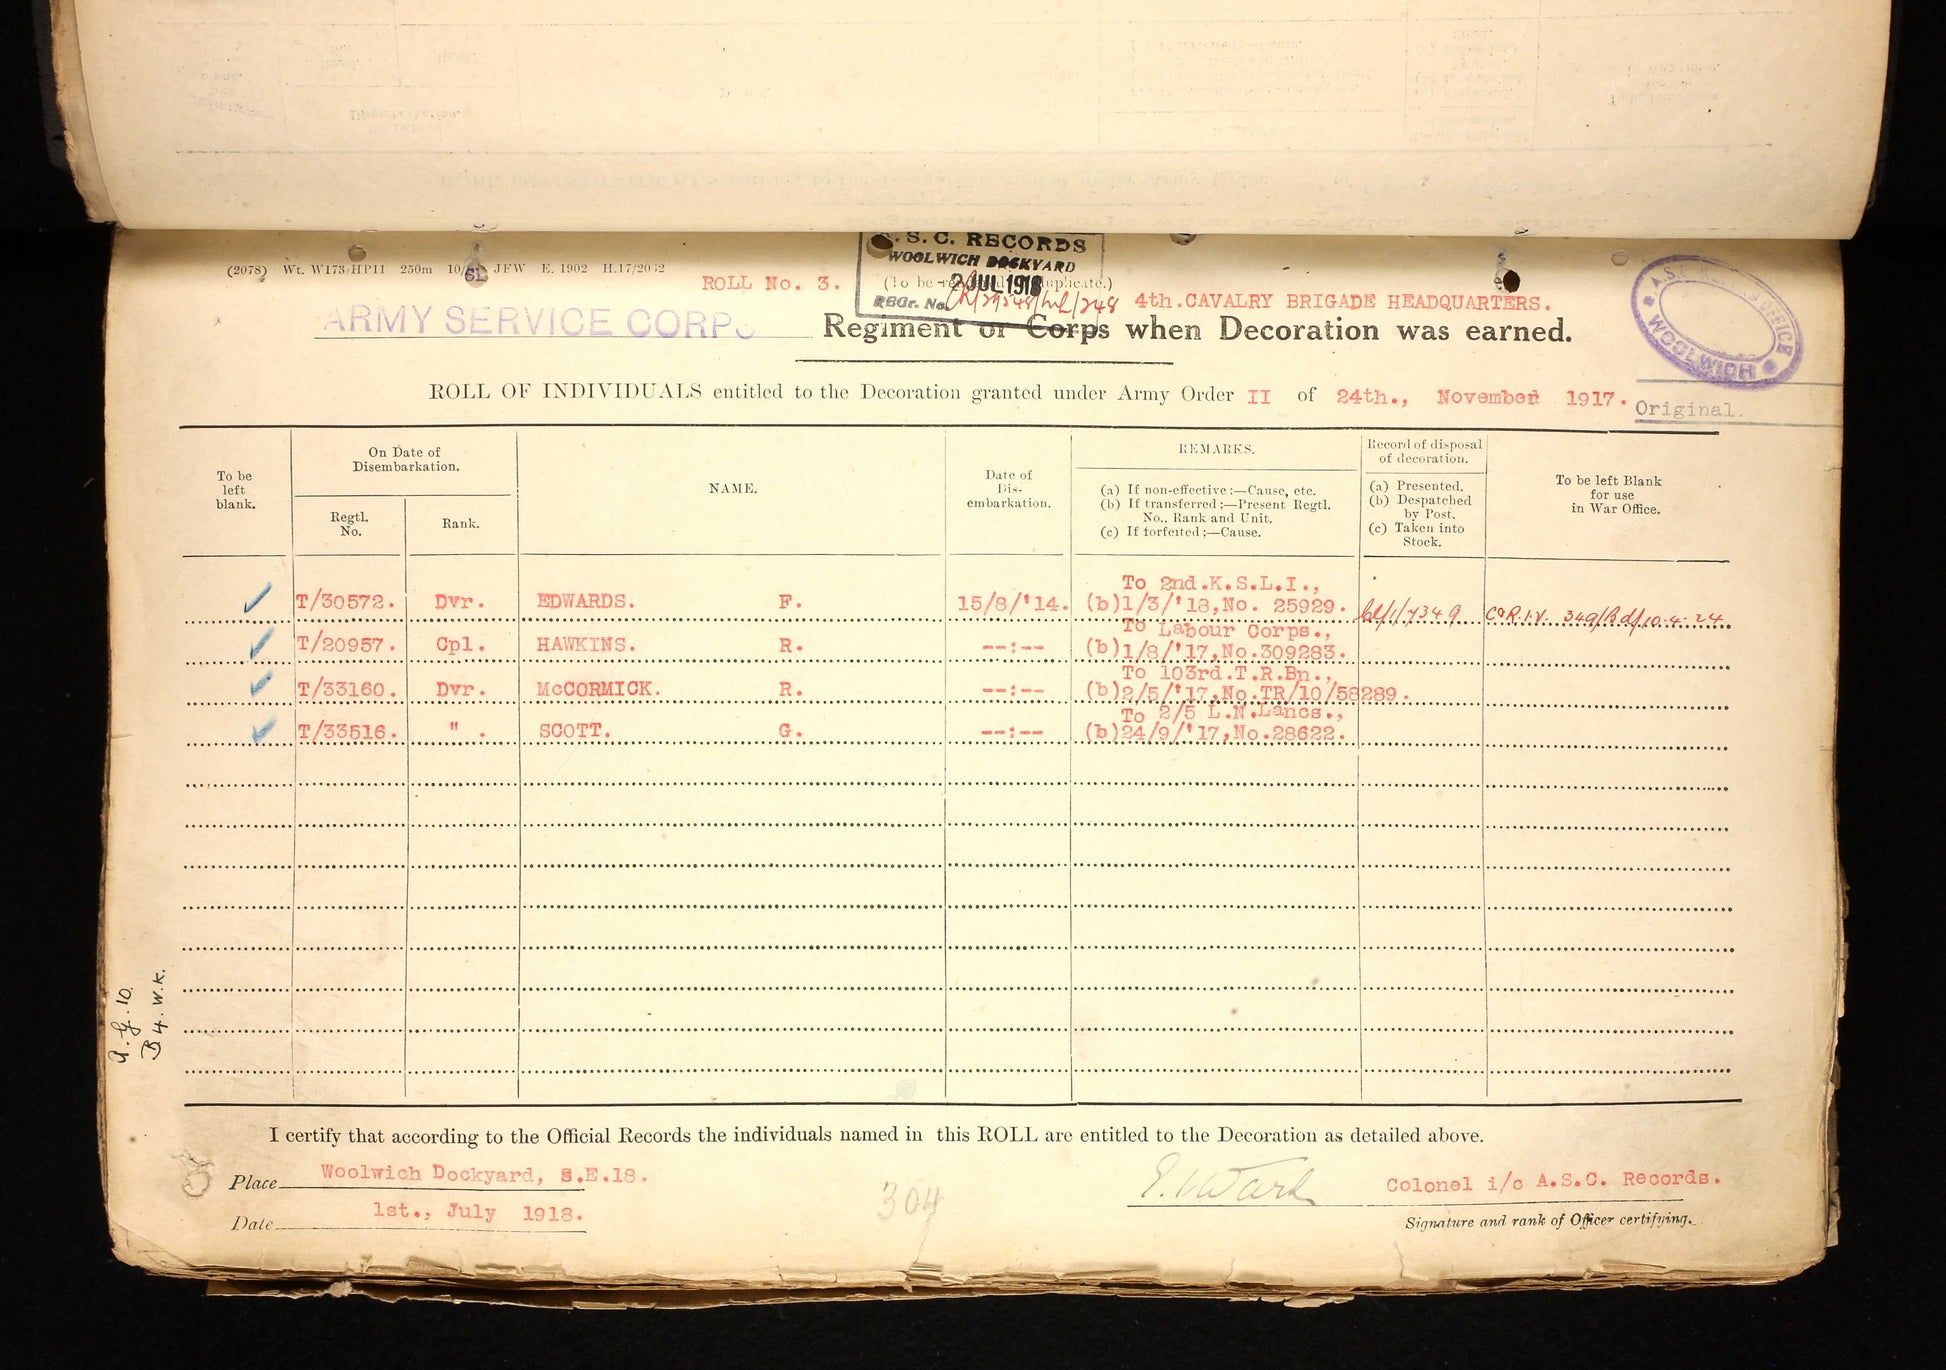 A.S.C. RECORDS
WOOLWICH DOCKYARD
2 JUL 1918
REGr. No.
(2078) Wt. W173/HP11 250m 10/ JFW E. 1902 H.17/20/2
SL
ROLL No. 3.
4th.CAVALRY BRIGADE HEADQUARTERS.
ARMY SERVICE CORPS
Regiment or Corps when Decoration was earned.
A.S.C. RECORDS OFFICE WOOLWICH
ROLL OF INDIVIDUALS entitled to the Decoration granted under Army Order II of 24th., November 1917.
Original.
To be left blank.
On Date of Disembarkation.
Regtl. No.
Rank.
NAME.
Date of Dis-embarkation.
REMARKS.
(a) If non-effective:—Cause, etc.
(b) If transferred;—Present Regtl. No., Rank and Unit.
(c) If forfeited;—Cause.
Record of disposal of decoration.
(a) Presented.
(b) Despatched by Post.
(c) Taken into Stock.
To be left Blank for use in War Office.
To 2nd.K.S.L.I.,
T/30572. Dvr. EDWARDS. F. 15/8/'14. (b)1/3/'18,No. 25929. 349/Bd/10.4.24
To Labour Corps.,
T/20957. Cpl. HAWKINS. R. --:-- (b)1/8/'17,No.309283.
To 103rd.T.R.Bn.,
T/33160. Dvr. McCORMICK. R. --:-- (b)2/5/'17,No.TR/10/58289.
To 2/5 L.N.Lancs.,
T/33516. " . SCOTT. G. --:-- (b)24/9/'17,No.28622.
A.G.10.
B4.W.K.
I certify that according to the Official Records the individuals named in this ROLL are entitled to the Decoration as detailed above.
Place Woolwich Dockyard, S.E.18.
Date 1st., July 1918.
304
Colonel i/c A.S.C. Records.
Signature and rank of Officer certifying.